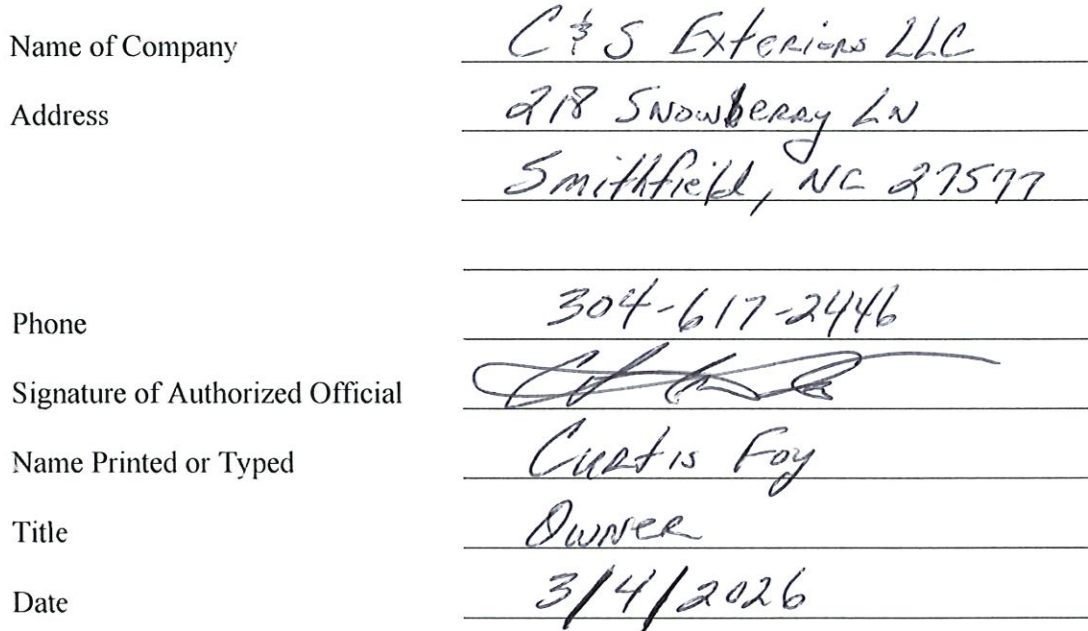 Name of Company C & S Exteriors LLC
Address 218 Snowberry LN
Smithfield, NC 27577
Phone 304-617-2446
Signature of Authorized Official
Name Printed or Typed Curtis Foy
Title Owner
Date 3/4/2026